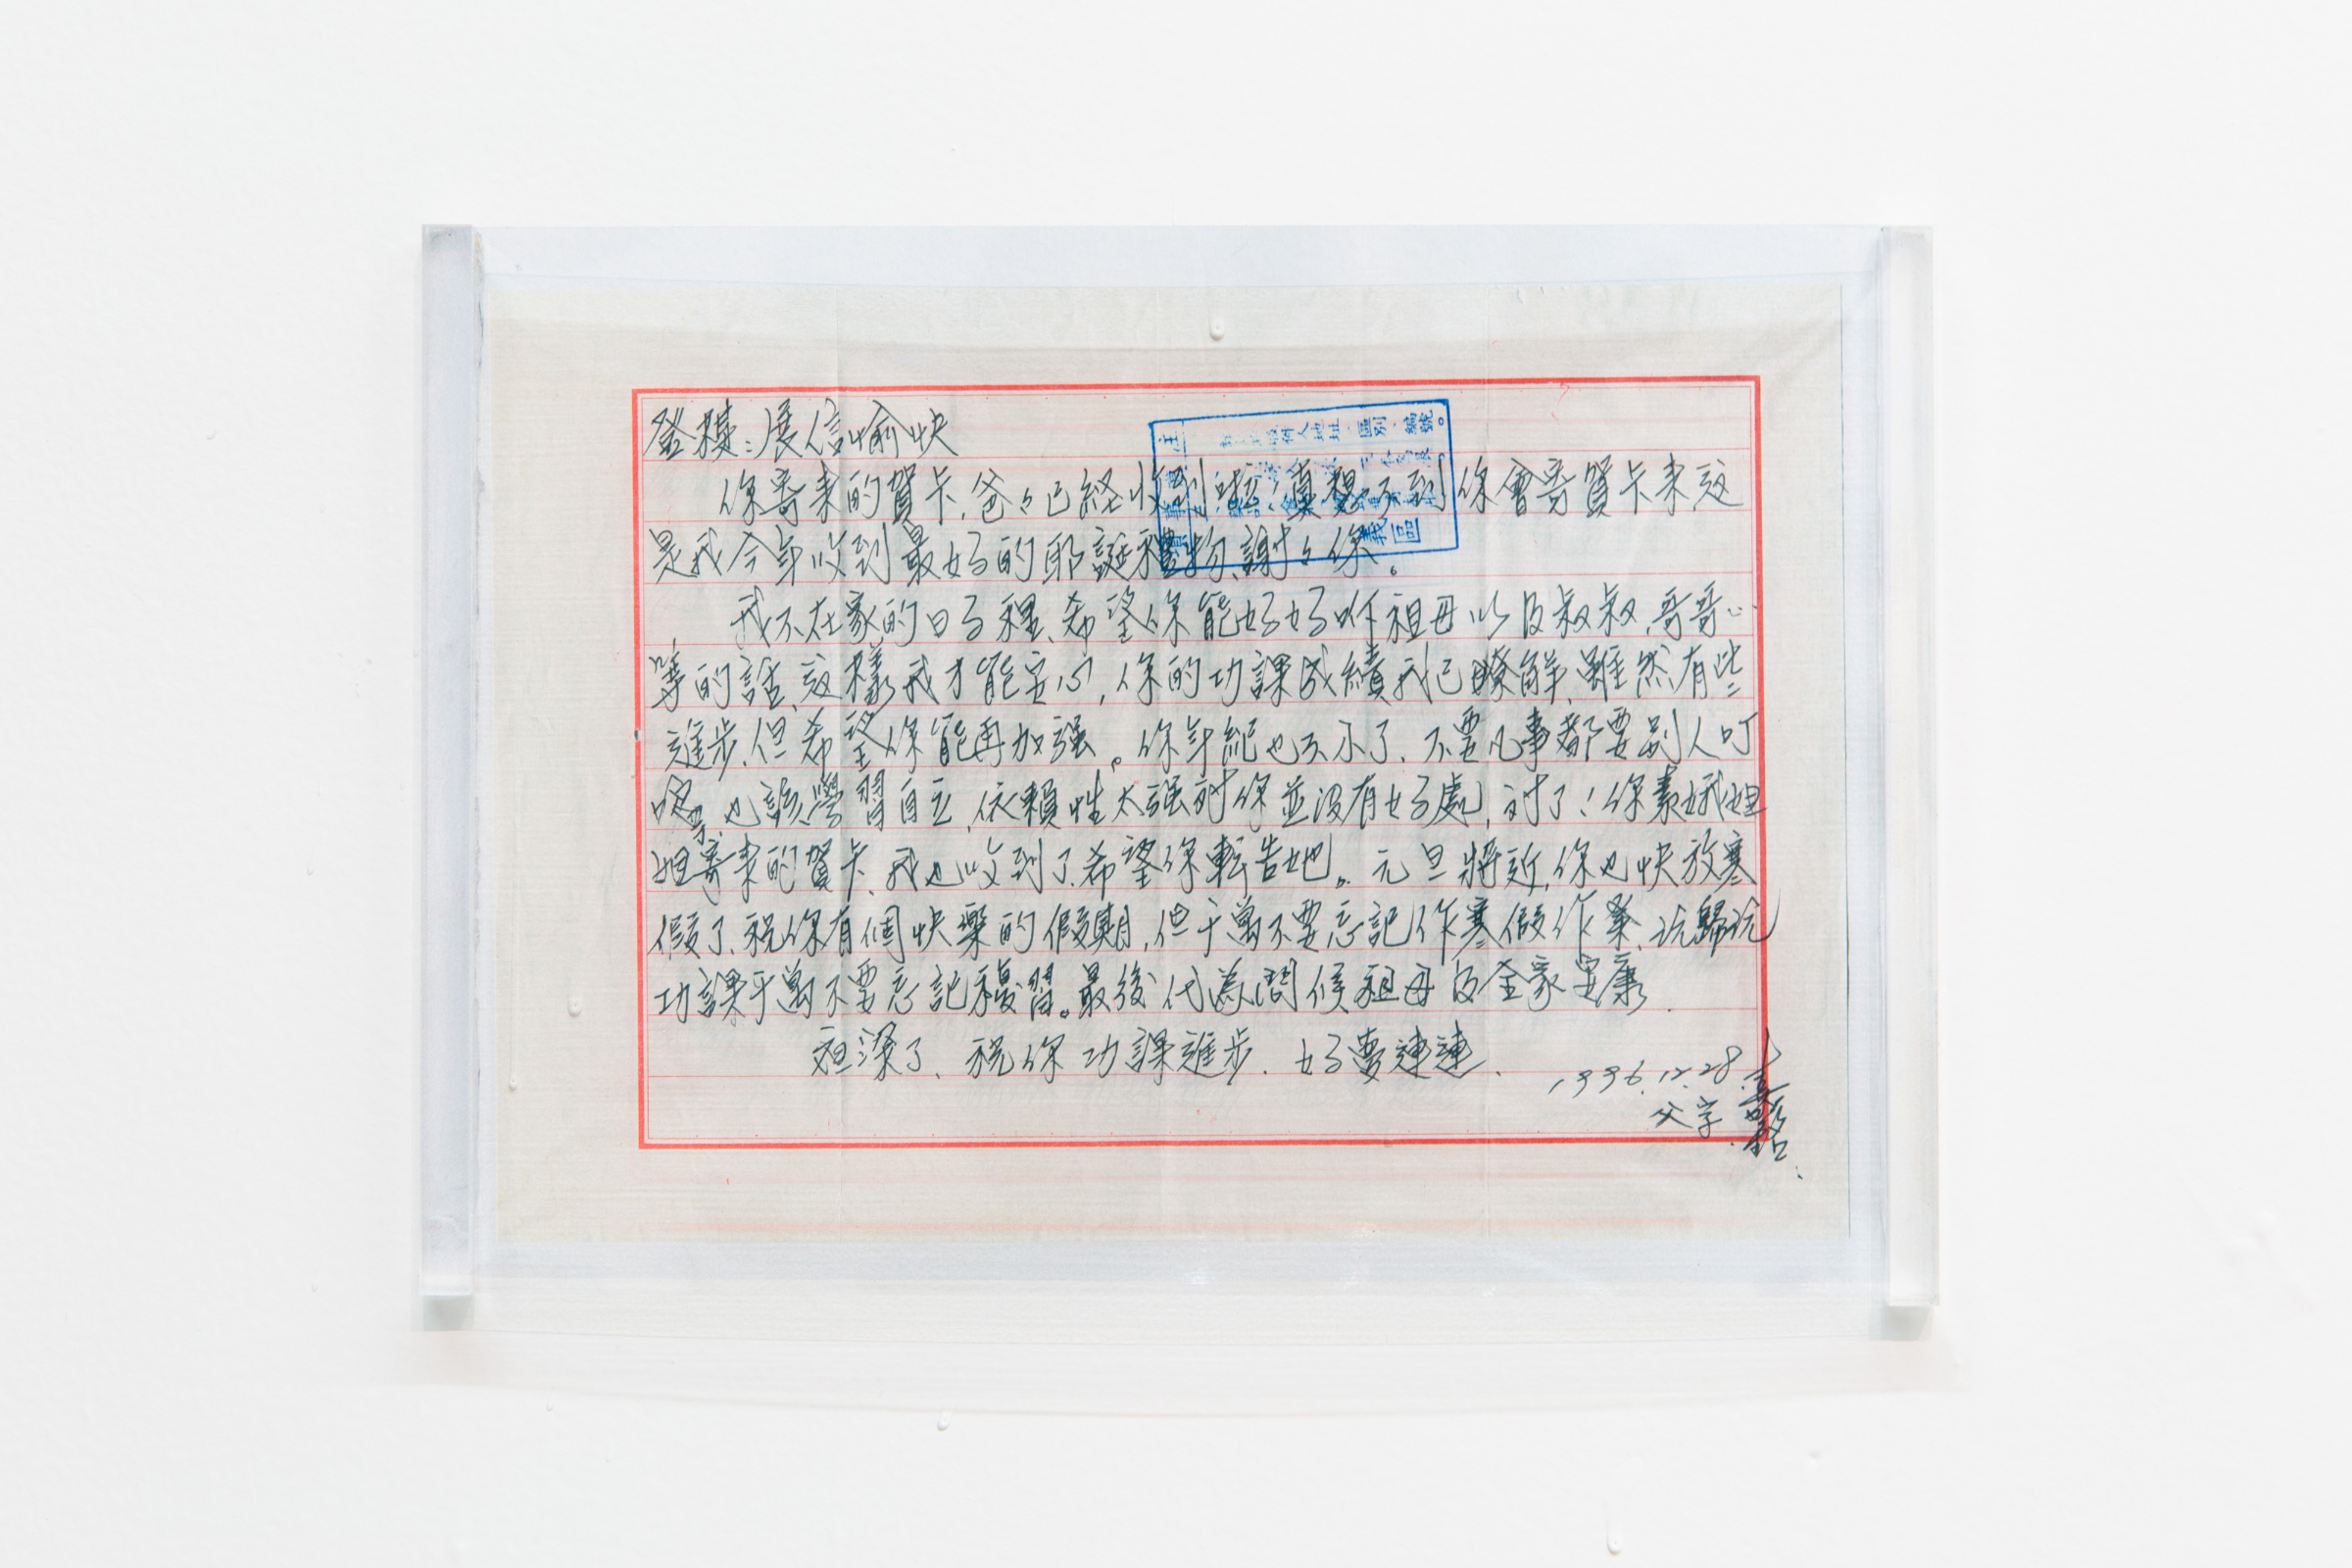 登糕:展信愉快
你寄来的賀卡,爸々已経收到啦,真想不到你會寄賀卡来這
是我今年收到最好的耶誕禮物、謝々你。
我不在家的日子裡、希望你能好好听祖母以及叔叔、哥哥…
等的話、這樣我才能安心,你的功課成績我已瞭解、雖然有些
進步、但希望你能再加强。你年紀也不小了、不要凡事都要别人叮
嚀、也該學習自立、依賴性太强対你並沒有好處,対了!你素娥姐
姐寄来的賀卡、我也收到了、希望你転告她。元旦將近,你也快放寒
假了、祝你有個快樂的假期,但千萬不要忘記作寒假作業、玩歸玩
功課千萬不要忘記複習。最後代為問候祖母及全家安康.
夜深了、祝你功課進步.好夢連連、
1996.12.28.
父字
區別 編號。
義區